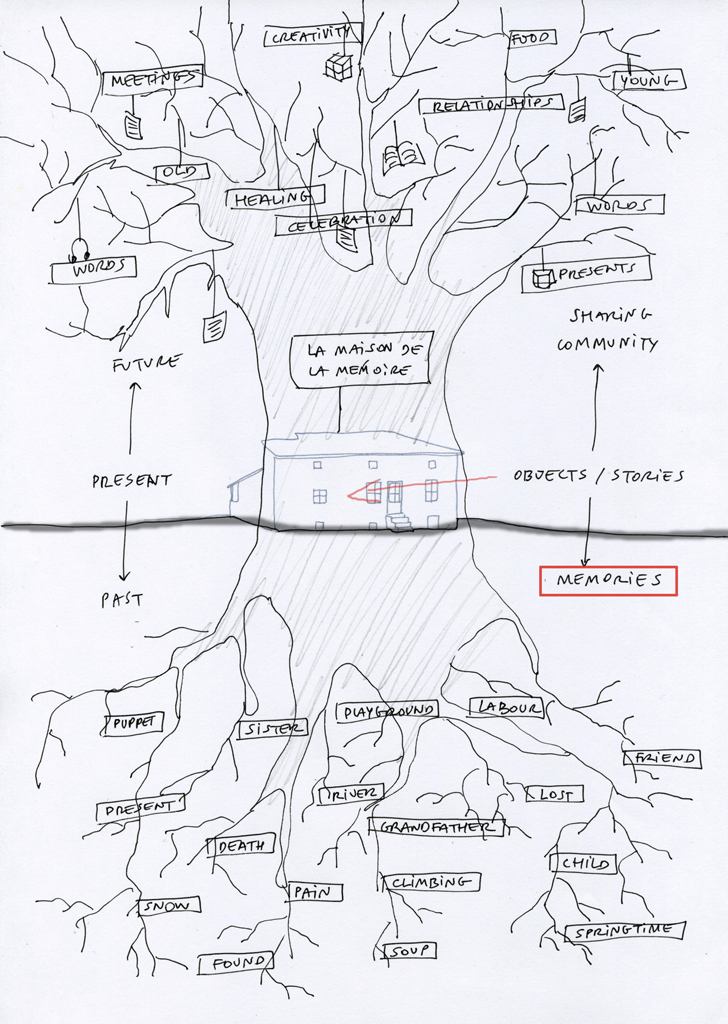 CREATIVITY
FOOD
MEETINGS
YOUNG
RELATIONSHIPS
OLD
HEALING
WORDS
CELEBRATION
WORDS
PRESENTS
SHARING
COMMUNITY
FUTURE
LA MAISON DE
LA MEMOIRE
PRESENT
OBJECTS / STORIES
PAST
MEMORIES
PUPPET
SISTER
PLAYGROUND
LABOUR
FRIEND
PRESENT
RIVER
LOST
GRANDFATHER
DEATH
CHILD
PAIN
CLIMBING
SNOW
SPRINGTIME
FOUND
SOUP